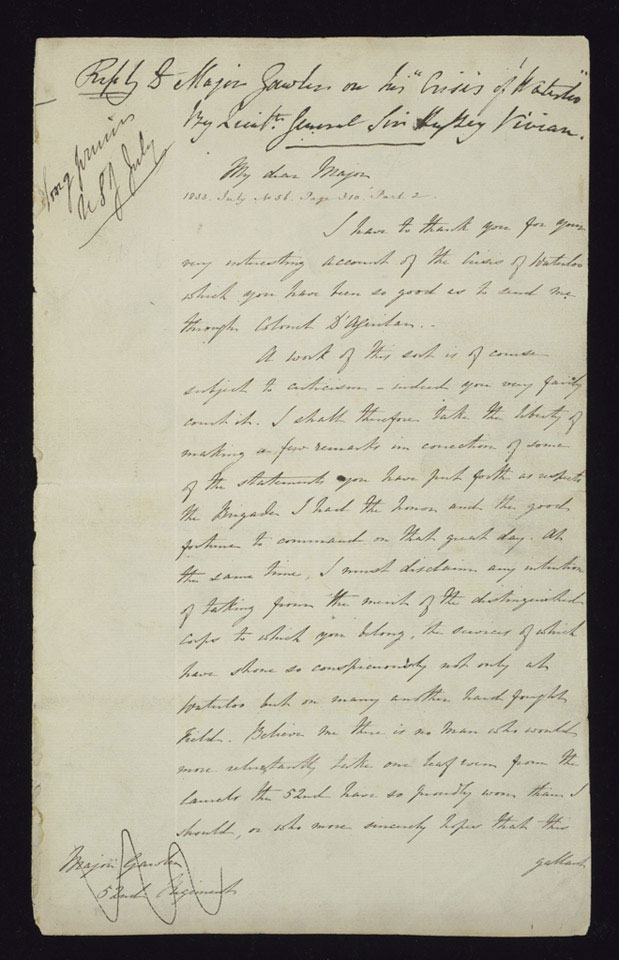 Reply to Major Gawler on his "Crisis of Waterloo"
By Lieutt. General Sir Hussey Vivian.
Long Primer
U S J July
My dear Major
1833. July No 56. Page 310. Part 2.
I have to thank you for your
very interesting account of the Crisis of Waterloo
which you have been so good as to send me
through Colonel D'Aguilar..
A work of this sort is of course
subject to criticism – indeed you very fairly
court it. I shall therefore take the liberty of
making a few remarks in correction of some
of the statements you have put forth as respects
the Brigade I had the honor and the good
fortune to command on that great day. At
the same time, I must disclaim any intention
of taking from the merit of the distinguished
corps to which you belong, the services of which
have shone so conspicuously not only at
Waterloo but on many another hard fought
Field. Believe me there is no man who would
more reluctantly take one leaf even from the
laurels the 52nd have so proudly won than I
should, or who more sincerely hopes that this
gallant
Major Gawler
52nd Regiment